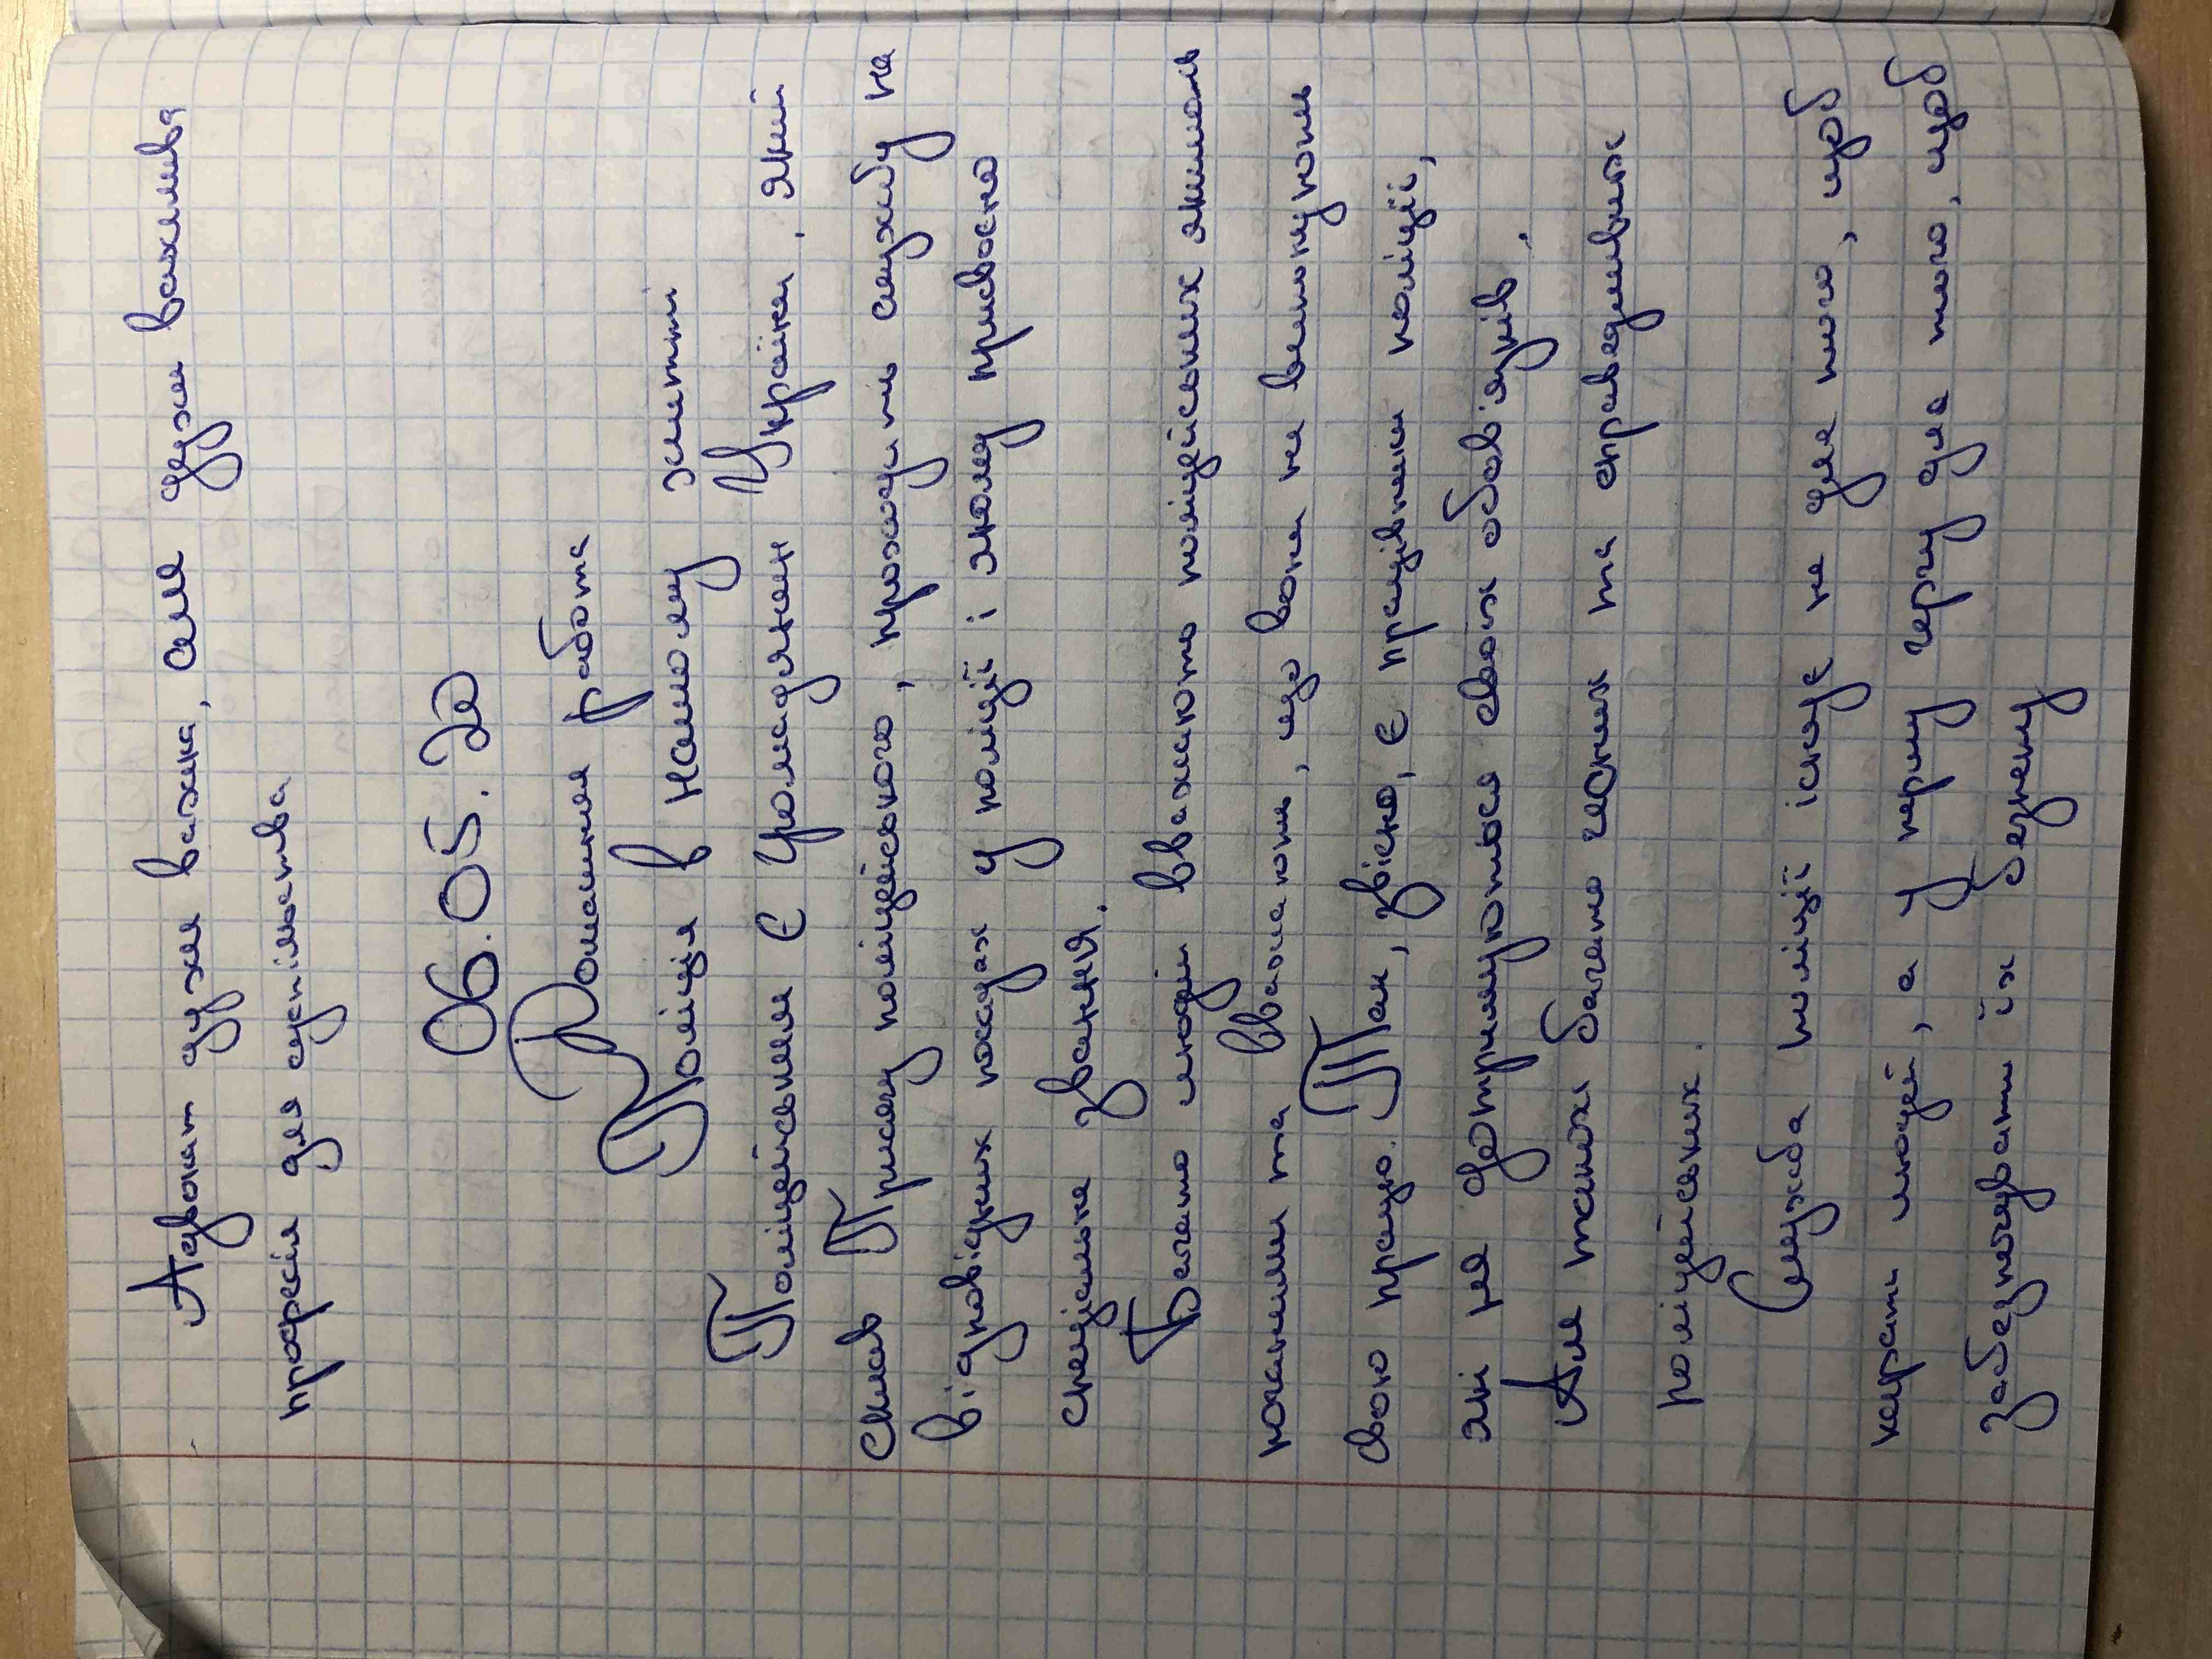 Адвокат дуже важка, але дуже важлива
професія для суспільства.
06.05.20
Домашня работа
Поліція в нашому житті
Поліцейським є громадянин України, який
склав Присягу поліцейського, проходить службу на
відповідних посадах у поліції і якому присвоєно
спеціальне звання.
Багато людей вважають поліцейських якимось
поганими та вважають, що вони не виконують
свою працю. Так, звісно, є працівники поліції,
які не дотримуються своїх обов'язків.
Але також багато чесних та справедливих
поліцейських.
Служба поліції існує не для того, щоб
карати людей, а у першу чергу для того, щоб
забезпечувати їх безпеку